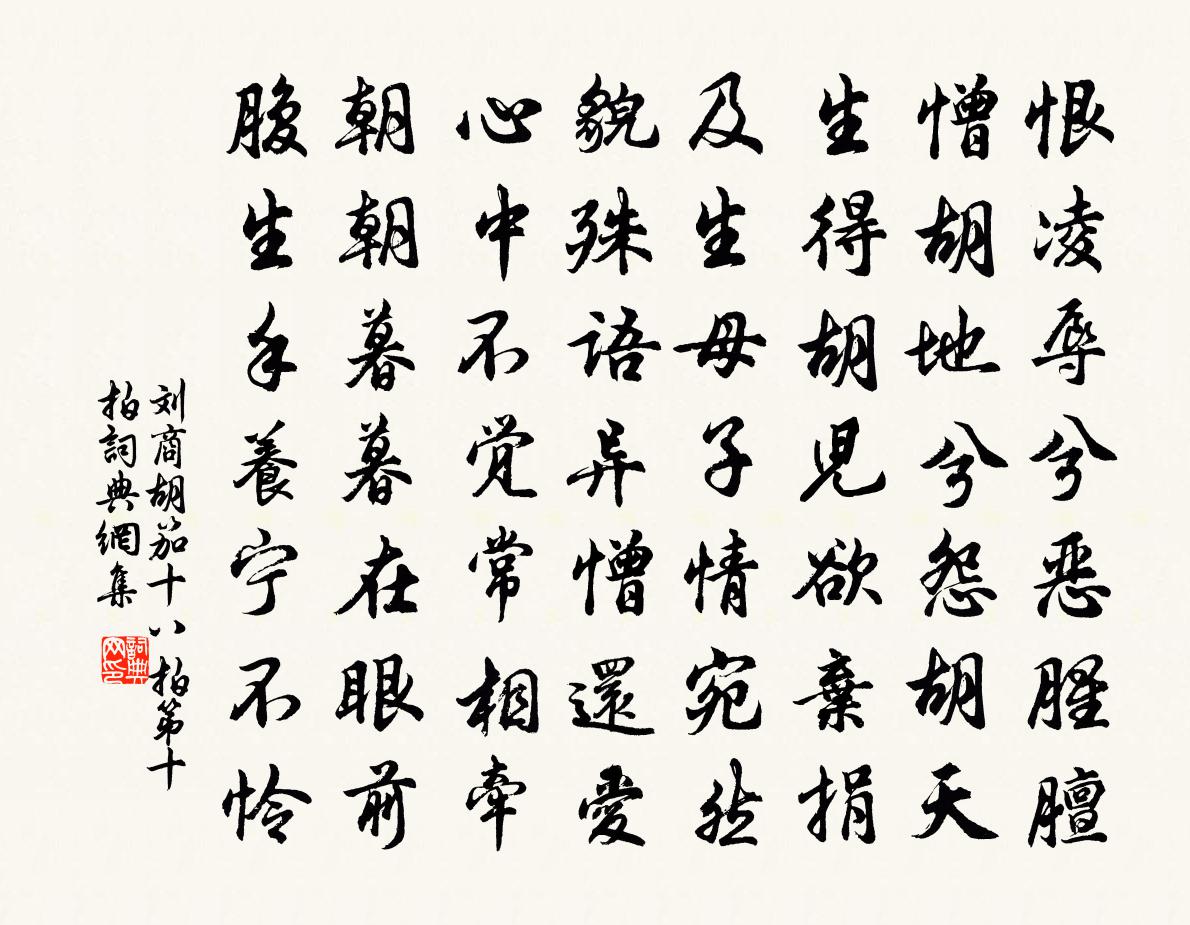 恨凌辱兮惡腥膻
憎胡地兮怨胡天
生得胡兒欲棄捐
及生母子情宛然
貌殊語异憎還愛
心中不覚常相牽
朝朝暮暮在眼前
腹生手養宁不怜
刘商胡笳十八拍第十
拍詞典網集
詞典网印